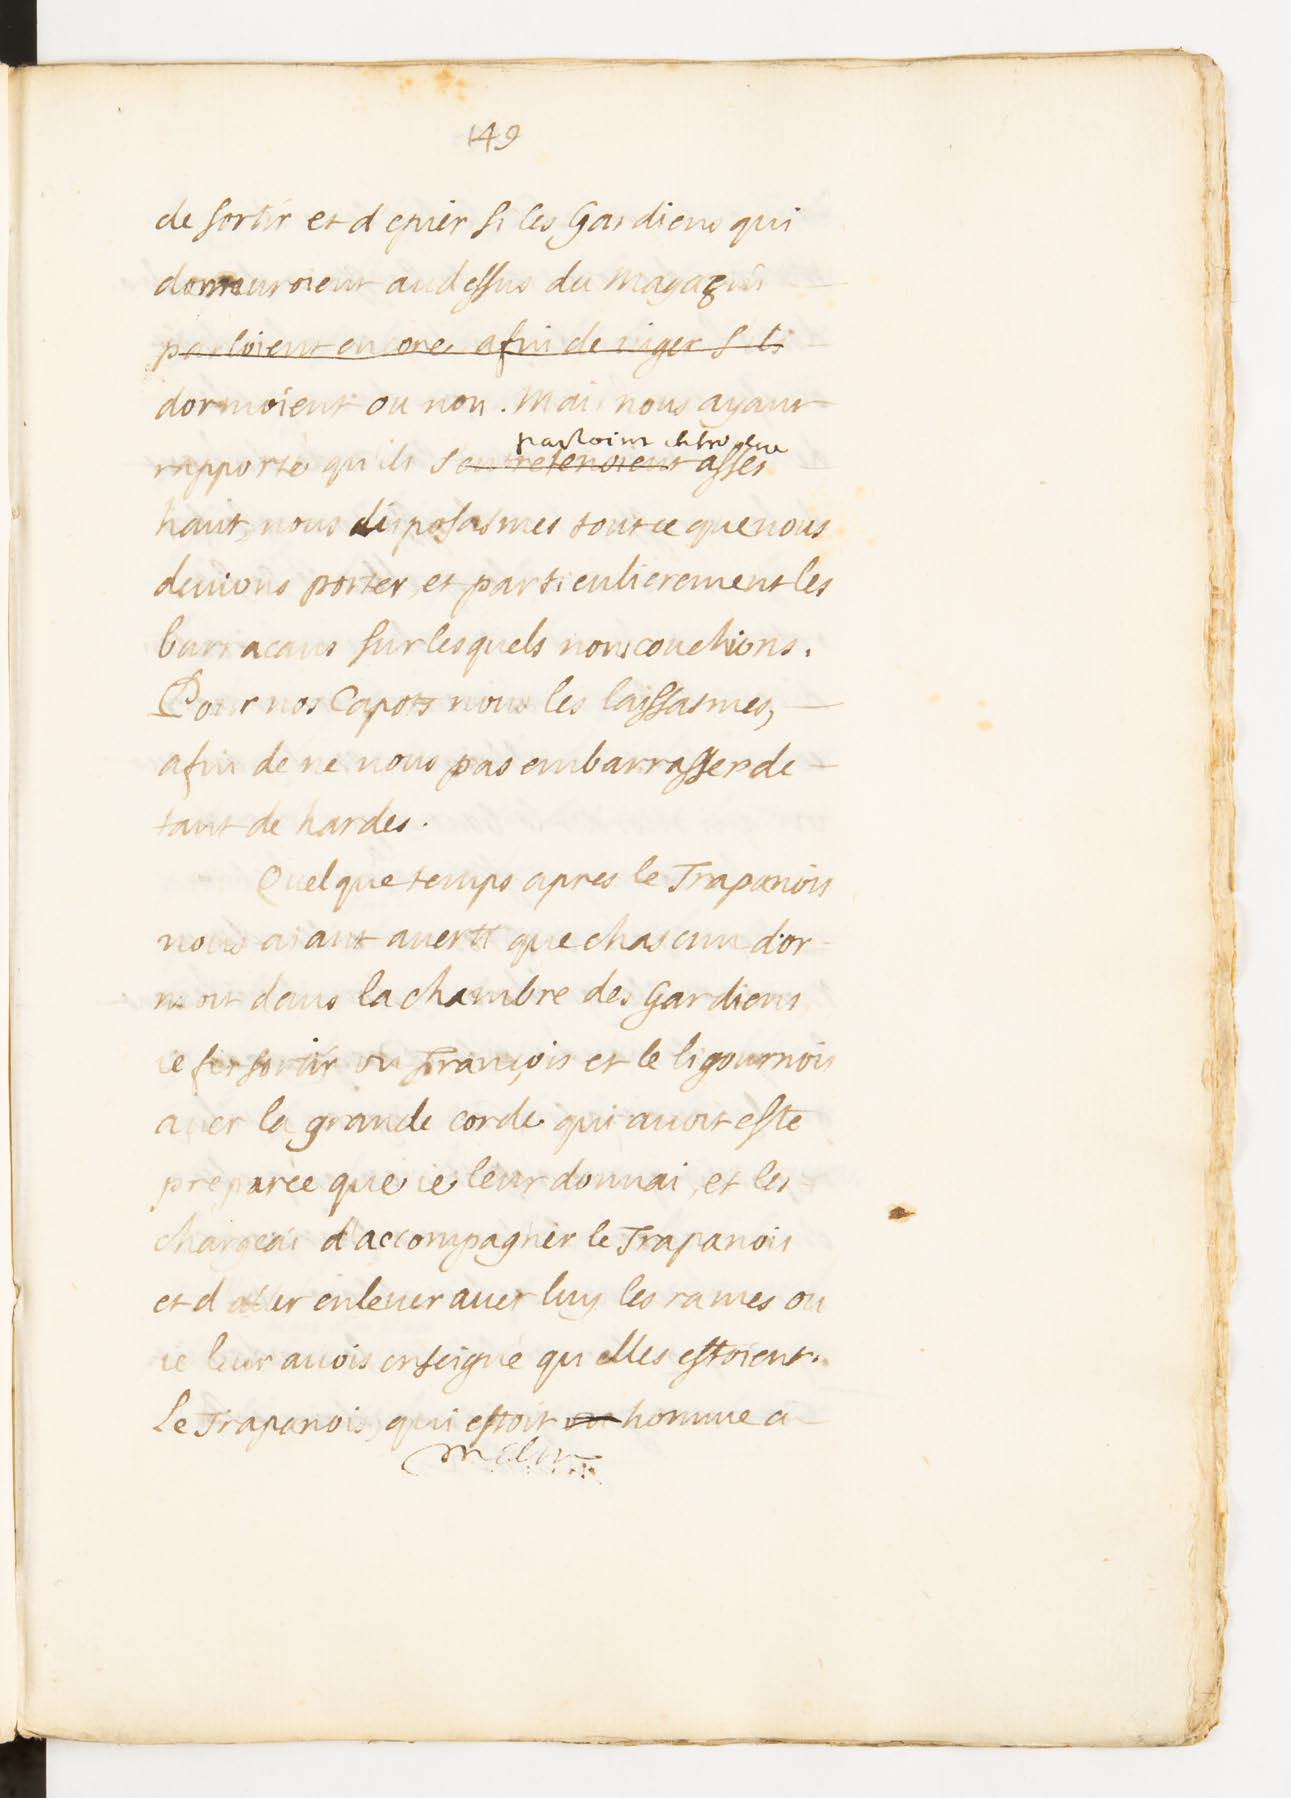 149
de sortir et d epier si les Gardiens qui
demeuroient au dessus du Magazin
parloient encore afin de iuger s ils
dormoient ou non. Mais nous ayant
parloient entre eux
rapporté qu'ils s'entretenoient assés
haut, nous disposasmes tout ce que nous
deuions porter, et particulierement les
barracans sur lesquels nous couchions.
Pour nos Capots nous les laissasmes,
afin de ne nous pas embarrasser de
tant de hardes.
Quelque temps apres le Trapanois
nous aiant auerti que chascun dor-
moit dans la chambre des Gardiens
ie fis sortir un François et le ligournois
auec la grande corde qui auoit esté
preparée que ie leur donnai, et les
chargeai d'accompagner le Trapanois
et d aller enleuer auec luy les rames ou
ie leur auois enseigné qu elles estoient.
Le Trapanois, qui estoit un homme a